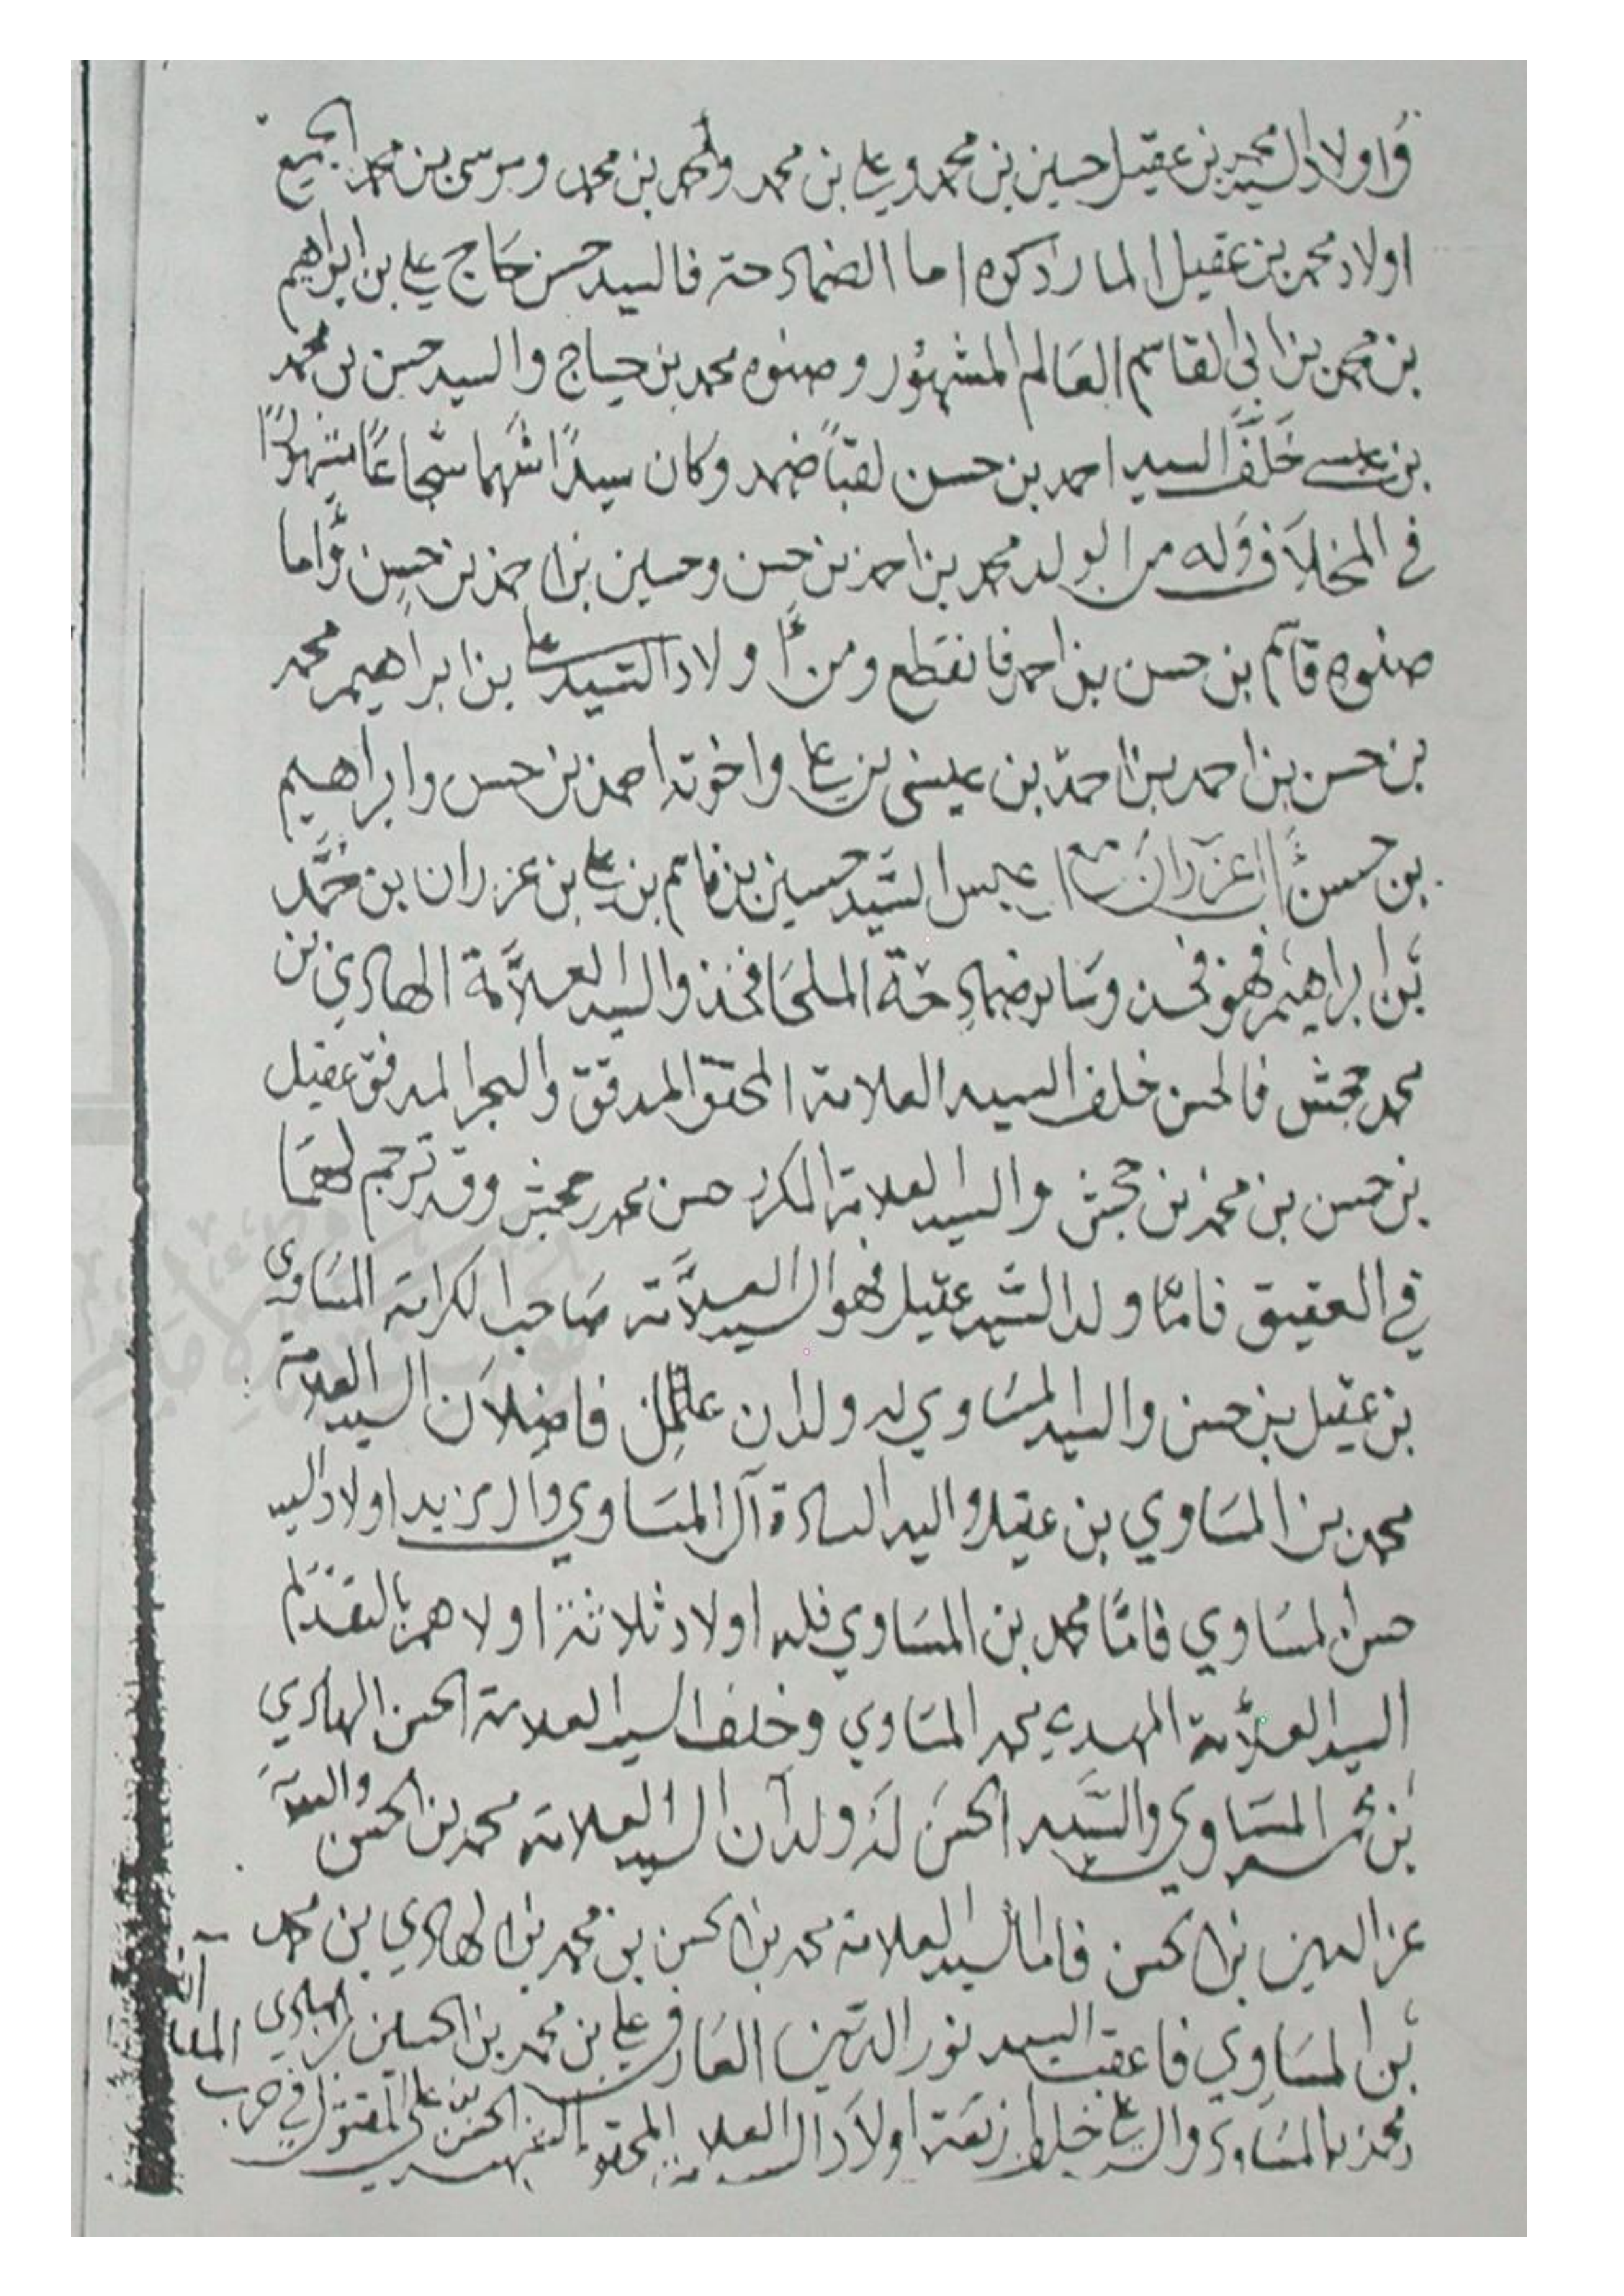 واولاد السيد محمد بن عقيل حسين بن محمد وعلي بن محمد واحمد بن محمد وموسى بن محمد الجميع
اولاد محمد بن عقيل المار ذكره اما الضمادحة فالسيد حسن حاج علي بن ابراهيم
بن محمد بن ابي القاسم العالم المشهور وصنوه محمد بن حاج والسيد حسن بن محمد
بن عيسى خلف السيد احمد بن حسن لقبا ضمد وكان سيدًا شهما شجاعًا مشهورًا
في المخلاف وله من الولد محمد بن احمد بن حسن وحسين بن احمد بن حسن واما
صنوه قاسم بن حسن بن احمد فانقطع ومن اولاد السيد علي بن ابراهيم محمد
بن حسن بن احمد بن احمد بن عيسى بن علي واخوته احمد بن حسن وابراهيم
بن حسن عزران السيد حسين بن قاسم بن علي بن عزران بن محمد
بن ابراهيم فهو وساير ضمادحة الملحا فخذ والسيد العلامة الهادي بن
محمد جحش فالحسن خلف السيد العلامة المحقق المدقق والبحر المدفق عقيل
بن حسن بن محمد بن جحش والسيد العلامة حسن محمد جحش وقد ترجم لهما
في العقيق فامّا ولد السيد عقيل فهو السيد العلامة صاحب الكرامة المساوى
بن عقيل بن حسن والسيد المساوي له ولدان فاضلان السيد العلامة
محمد بن المساوي بن عقيل واليه السادة آل المساوي وال مزيد اولاد السيد
حسن المساوي فامّا محمد بن المساوي فله اولاد ثلاثة اولاهم بالتقدم
السيد العلامة المهدي محمد المساوي وخلف السيد العلامة الحسن الهادي
بن محمد المساوي والسيد الحسن له ولدان السيد العلامة محمد بن الحسن والسيد
عز الدين بن الحسن فاما السيد العلامة محمد بن الحسن بن محمد بن الهادي بن محمد
بن المساوي فاعقب السيد نور الدين العارف علي بن محمد بن الحسين الهادي
محمد المساوي والسيد علي خلف اربعة اولاد السيد العلامة الحسن بن علي المقتول في حرب